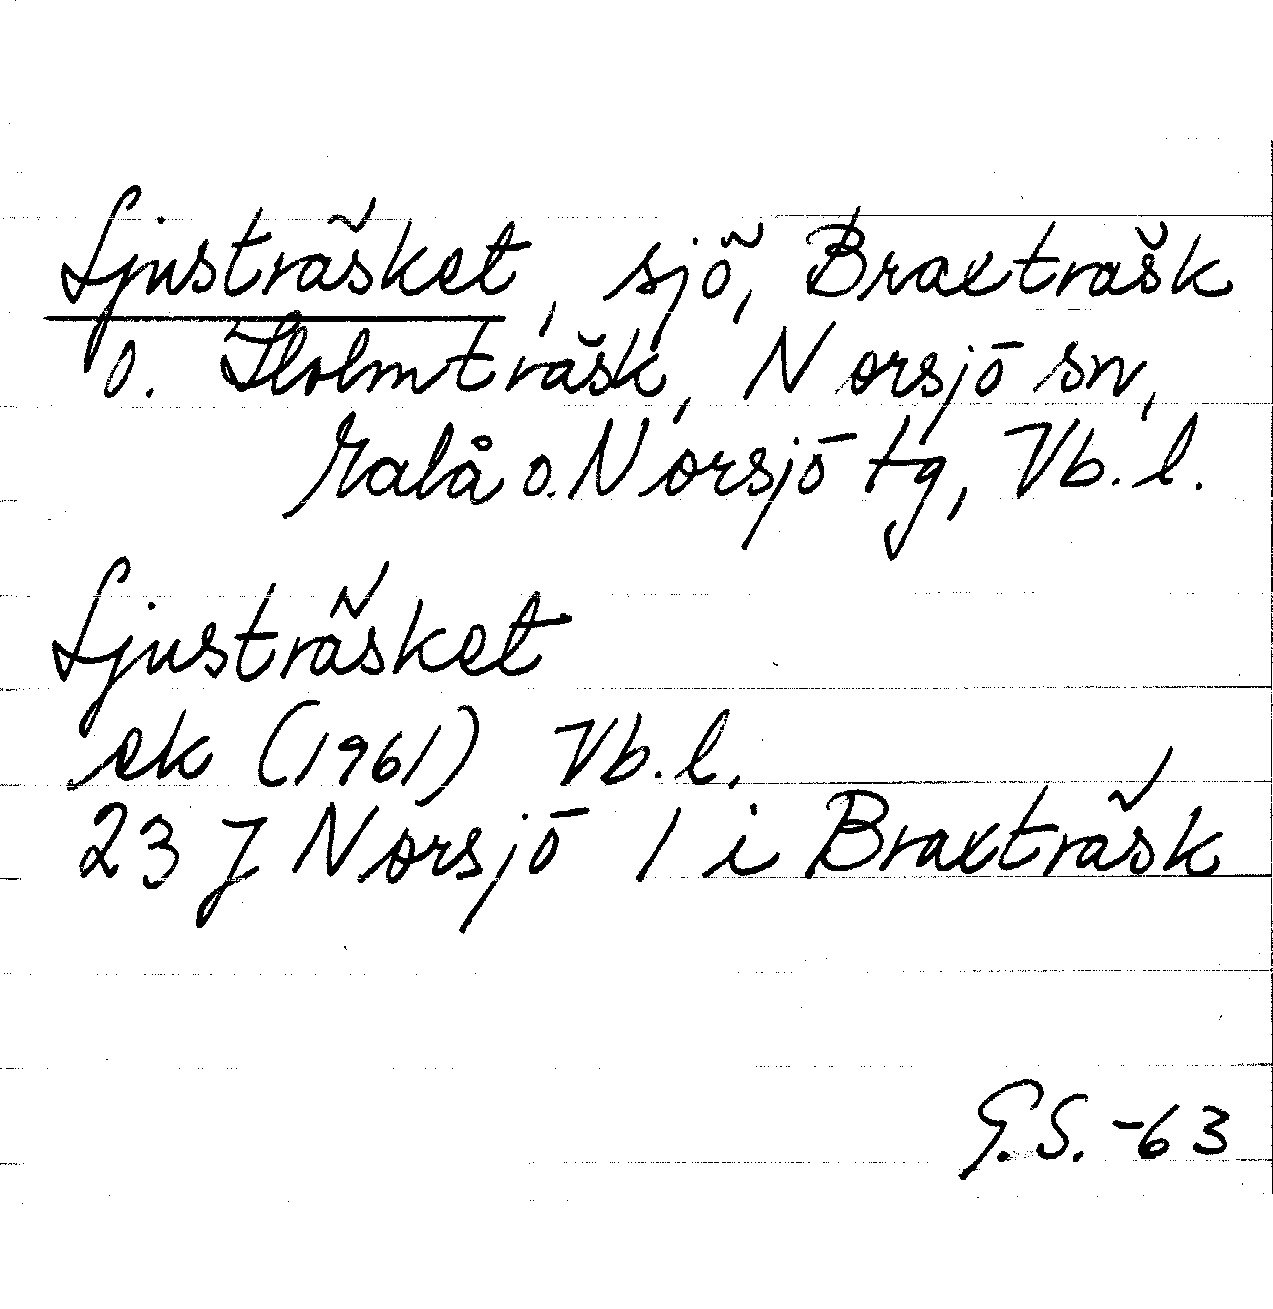 Ljusträsket, sjö, Braxträsk
o. Holmträsk, Norsjö sn,
Malå o. Norsjö tg, Vb. l.
Ljusträsket
ek (1961) Vb. l.
23 J Norsjö 1 i Braxträsk
G.S. -63